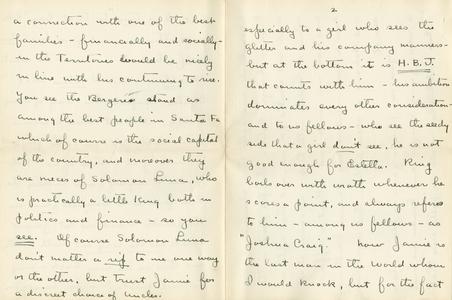 a connection with one of the best
families - financially and socially -
in the Territories would be nicely
in line with his continuing to rise.
You see the Bergeres stand as
among the best people in Santa Fe
which of course is the social capital
of the country, and moreover they
are nieces of Solomon Luna, who
is practically a little king both in
politics and finance - so you
see. Of course Solomon Luna
don't matter a rip to me one way
or the other, but trust Jamie for
a discreet choice of uncles.
2
especially to a girl who sees the
glitter and his company manners -
but at the bottom it is H.B.J.
that counts with him - his ambition
dominates every other consideration -
and to us fellows - who see the seedy
side that a girl don't see, he is not
good enough for Estella. Ring
boils over with wrath whenever he
scores a point, and always refers
to him - among us fellows - as
"Joshua Craig." Now Jamie is
the last man in the world whom
I would knock, but for the fact